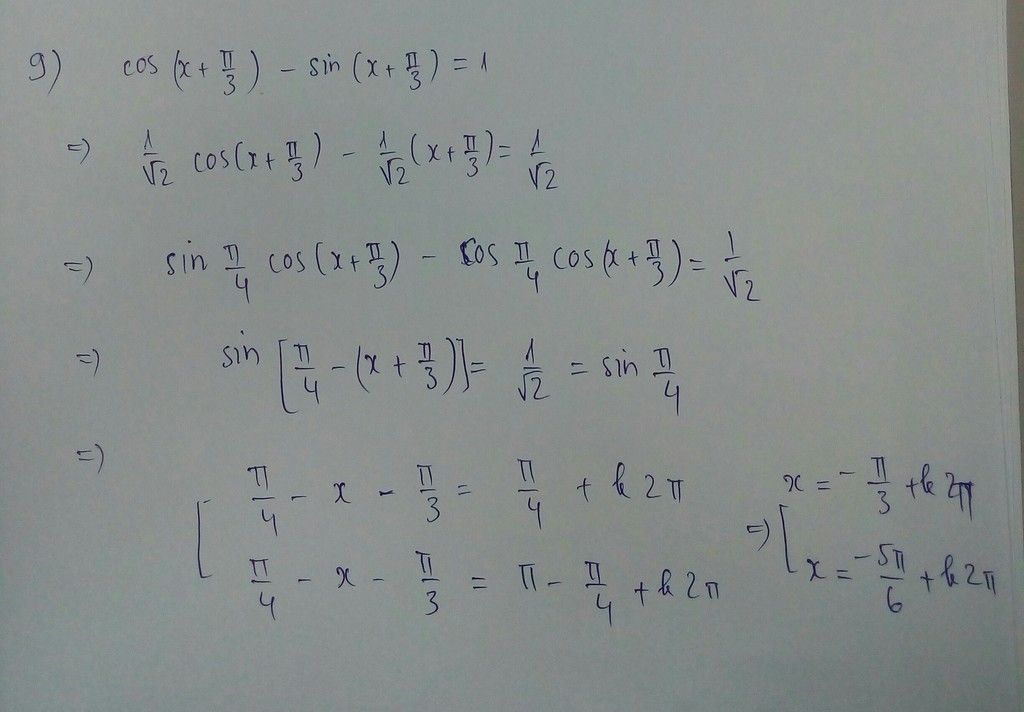 9) cos (x + π/3) - sin (x + π/3) = 1
=) 1/√2 cos(x + π/3) - 1/√2 (x + π/3) = 1/√2
=) sin π/4 cos(x + π/3) - cos π/4 cos(x + π/3) = 1/√2
=) sin [π/4 - (x + π/3)] = 1/√2 = sin π/4
=) [ π/4 - x - π/3 = π/4 + k2π
π/4 - x - π/3 = π - π/4 + k2π
=) [ x = -π/3 + k2π
x = -5π/6 + k2π